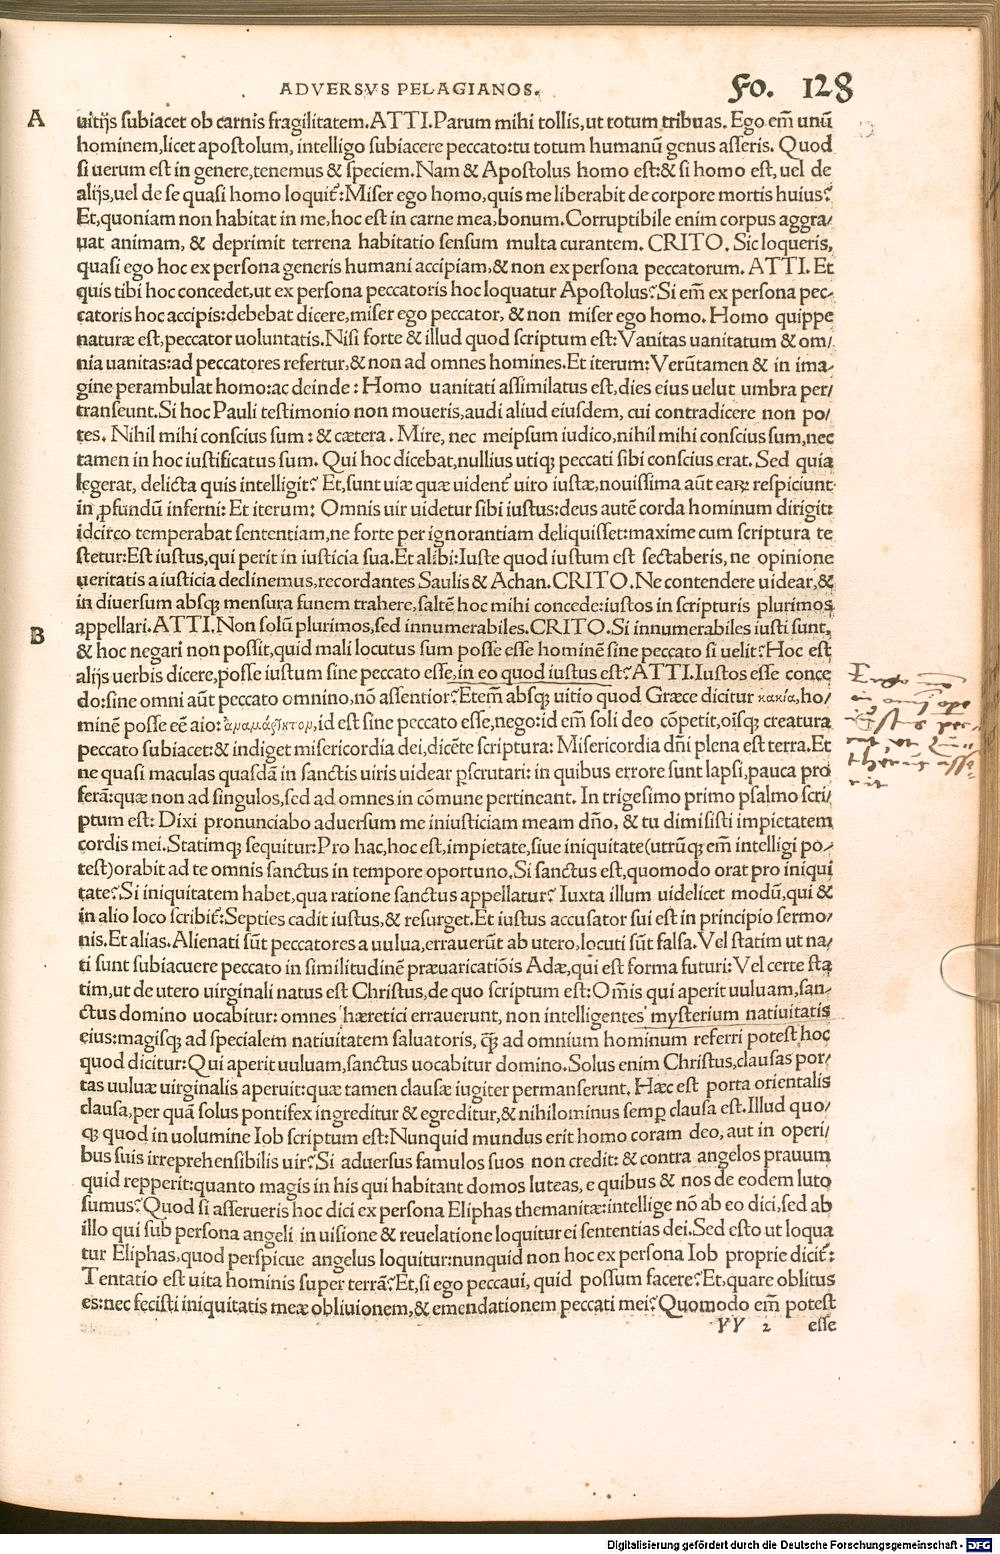 ADVERSVS PELAGIANOS.
Fo. 128
A
uitijs subiacet ob carnis fragilitatem. ATTI. Parum mihi tollis, ut totum tribuas. Ego em̄ unū
hominem, licet apostolum, intelligo subiacere peccato: tu totum humanū genus asseris. Quod
si uerum est in genere, tenemus & speciem. Nam & Apostolus homo est: & si homo est, uel de
alijs, uel de se quasi homo loquit᷑: Miser ego homo, quis me liberabit de corpore mortis huius?
Et, quoniam non habitat in me, hoc est in carne mea, bonum. Corruptibile enim corpus aggra/
uat animam, & deprimit terrena habitatio sensum multa curantem. CRITO. Sic loqueris,
quasi ego hoc ex persona generis humani accipiam, & non ex persona peccatorum. ATTI. Et
quis tibi hoc concedet, ut ex persona peccatoris hoc loquatur Apostolus? Si em̄ ex persona pec/
catoris hoc accipis: debebat dicere, miser ego peccator, & non miser ego homo. Homo quippe
naturæ est, peccator uoluntatis. Nisi forte & illud quod scriptum est: Vanitas uanitatum & om/
nia uanitas: ad peccatores refertur, & non ad omnes homines. Et iterum: Verūtamen & in ima/
gine perambulat homo: ac deinde: Homo uanitati assimilatus est, dies eius uelut umbra per/
transeunt. Si hoc Pauli testimonio non moueris, audi aliud eiusdem, cui contradicere non po/
tes. Nihil mihi conscius sum: & cætera. Mire, nec meipsum iudico, nihil mihi conscius sum, nec
tamen in hoc iustificatus sum. Qui hoc dicebat, nullius utiqꝫ peccati sibi conscius erat. Sed quia
legerat, delicta quis intelligit? Et, sunt uiæ quæ uident᷑ uiro iustæ, nouissima aūt earꝝ respiciunt
in ꝓfundū inferni: Et iterum: Omnis uir uidetur sibi iustus: deus autē corda hominum dirigit:
idcirco temperabat sententiam, ne forte per ignorantiam deliquisset: maxime cum scriptura te
stetur: Est iustus, qui perit in iusticia sua. Et alibi: Iuste quod iustum est sectaberis, ne opinione
ueritatis a iusticia declinemus, recordantes Saulis & Achan. CRITO. Ne contendere uidear, &
in diuersum absqꝫ mensura funem trahere, saltē hoc mihi concede: iustos in scripturis plurimos
appellari. ATTI. Non solū plurimos, sed innumerabiles. CRITO. Si innumerabiles iusti sunt,
B
& hoc negari non possit, quid mali locutus sum posse esse hominē sine peccato si uelit? Hoc est
alijs uerbis dicere, posse iustum sine peccato esse, in eo quod iustus est? ATTI. Iustos esse conce
do: sine omni aūt peccato omnino, nō assentior? Etem̄ absqꝫ uitio quod Græce dicitur κακία, ho/
minē posse eē aio: ἀναμάρτητον, id est sine peccato esse, nego: id em̄ soli deo cōpetit, oīsqꝫ creatura
peccato subiacet: & indiget misericordia dei, dicēte scriptura: Misericordia dn̄i plena est terra. Et
ne quasi maculas quasdā in sanctis uiris uidear ꝑscrutari: in quibus errore sunt lapsi, pauca pro
ferā: quæ non ad singulos, sed ad omnes in cōmune pertineant. In trigesimo primo psalmo scri/
ptum est: Dixi pronunciabo aduersum me iniusticiam meam dn̄o, & tu dimisisti impietatem
cordis mei. Statimqꝫ sequitur: Pro hac, hoc est, impietate, siue iniquitate (utrūqꝫ em̄ intelligi po/
test) orabit ad te omnis sanctus in tempore oportuno. Si sanctus est, quomodo orat pro iniqui
tate? Si iniquitatem habet, qua ratione sanctus appellatur? Iuxta illum uidelicet modū, qui &
in alio loco scribit᷑: Septies cadit iustus, & resurget. Et iustus accusator sui est in principio sermo/
nis. Et alias. Alienati sūt peccatores a uulua, errauerūt ab utero, locuti sūt falsa. Vel statim ut na/
ti sunt subiacuere peccato in similitudinē præuaricatiōis Adæ, qui est forma futuri: Vel certe sta
tim, ut de utero uirginali natus est Christus, de quo scriptum est: Om̄is qui aperit uuluam, san/
ctus domino uocabitur: omnes hæretici errauerunt, non intelligentes mysterium natiuitatis
eius: magisqꝫ ad specialem natiuitatem saluatoris, q̄ꝫ ad omnium hominum referri potest hoc
quod dicitur: Qui aperit uuluam, sanctus uocabitur domino. Solus enim Christus, clausas por/
tas uuluæ uirginalis aperuit: quæ tamen clausæ iugiter permanserunt. Hæc est porta orientalis
clausa, per quā solus pontifex ingreditur & egreditur, & nihilominus semꝑ clausa est. Illud quo/
qꝫ quod in uolumine Iob scriptum est: Nunquid mundus erit homo coram deo, aut in operi/
bus suis irreprehensibilis uir? Si aduersus famulos suos non credit: & contra angelos prauum
quid repperit: quanto magis in his qui habitant domos luteas, e quibus & nos de eodem luto
sumus? Quod si asserueris hoc dici ex persona Eliphas themanitæ: intellige nō ab eo dici, sed ab
illo qui sub persona angeli in uisione & reuelatione loquitur ei sententias dei. Sed esto ut loqua
tur Eliphas, quod perspicue angelus loquitur: nunquid non hoc ex persona Iob proprie dicit᷑:
Tentatio est uita hominis super terrā? Et, si ego peccaui, quid possum facere? Et, quare oblitus
es: nec fecisti iniquitatis meæ obliuionem, & emendationem peccati mei? Quomodo em̄ potest
YY 2 esse
Ergo
in omj ope
iustus pec-
cat ut Lu-
therus asse-
rit
Digitalisierung gefördert durch die Deutsche Forschungsgemeinschaft - DFG